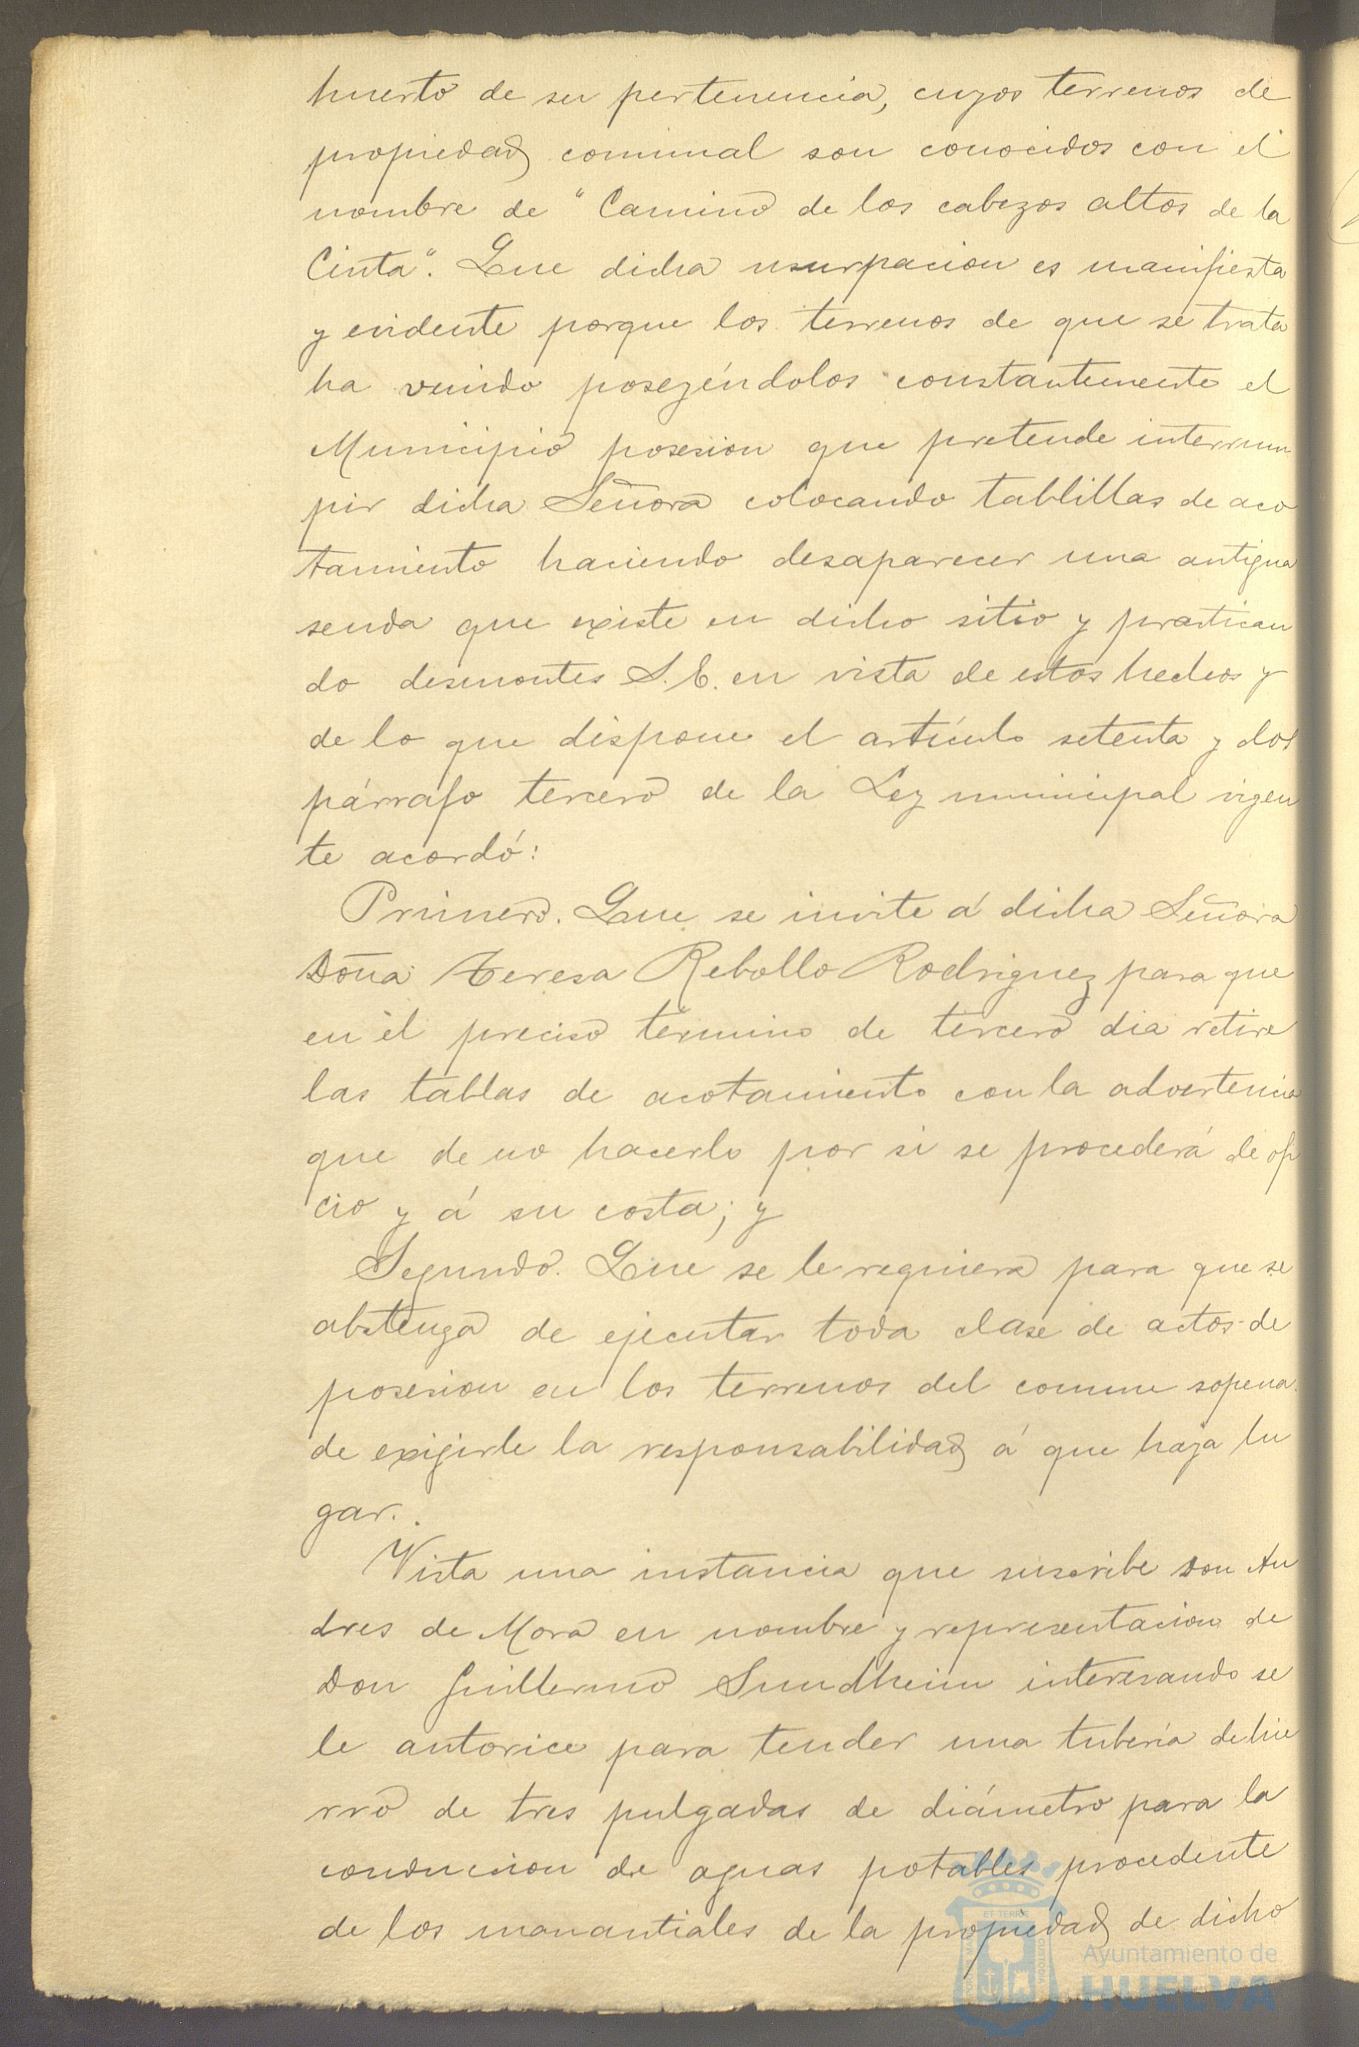 huerto de su pertenencia, cuyos terrenos de
propiedad comunal son conocidos con el
nombre de "Camino de los cabezos altos de la
Cinta". Que dicha usurpacion es manifiesta
y evidente porque los terrenos de que se trata
ha venido poseyéndolos constantemente el
Municipio posesion que pretende interrum
pir dicha Señora colocando tablillas de aco
tamiento haciendo desaparecer una antigua
senda que existe en dicho sitio y practican
do desmontes S. E. en vista de estos hechos y
de lo que dispone el artículo setenta y dos
párrafo tercero de la Ley municipal vigen
te acordó:
Primero. Que se invite á dicha Señora
Doña Teresa Rebollo Rodriguez para que
en el preciso término de tercero dia retire
las tablas de acotamiento con la advertencia
que de no hacerlo por si se procederá de ofi
cio y á su costa; y
Segundo. Que se le requiera para que se
abstenga de ejecutar toda clase de actos de
posesion en los terrenos del comun sopena
de exigirle la responsabilidad á que haya lu
gar.
Vista una instancia que suscribe Don An
dres de Mora en nombre y representacion de
Don Guillermo Sundheim interesando se
le autorice para tender una tubería de hie
rro de tres pulgadas de diámetro para la
conduccion de aguas potables procedente
de los manantiales de la propiedad de dicho
Ayuntamiento de
HUELVA